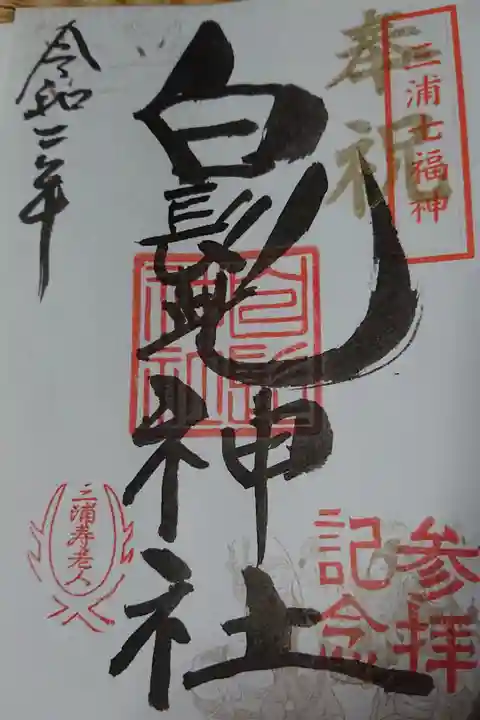 奉祝
三浦七福神
白髭神社
令和二年
白髭神社
三浦寿老人
参拝
記念